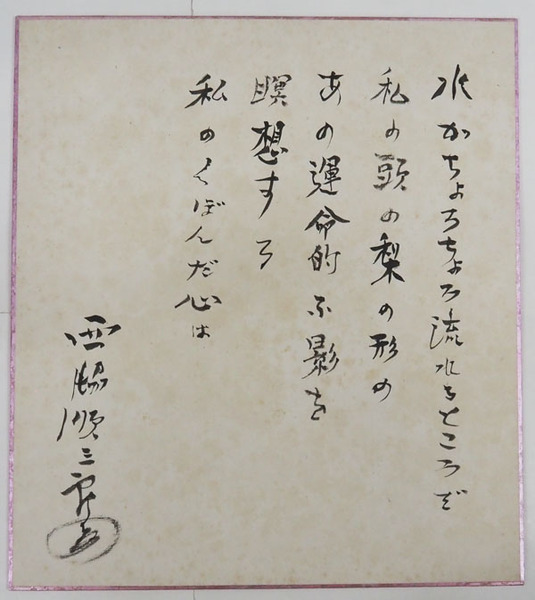 水がちょろちょろ流れるところで
私の頭の梨の形の
あの運命的な影を
瞑想する
私のくぼんだ心は
西脇順三郎